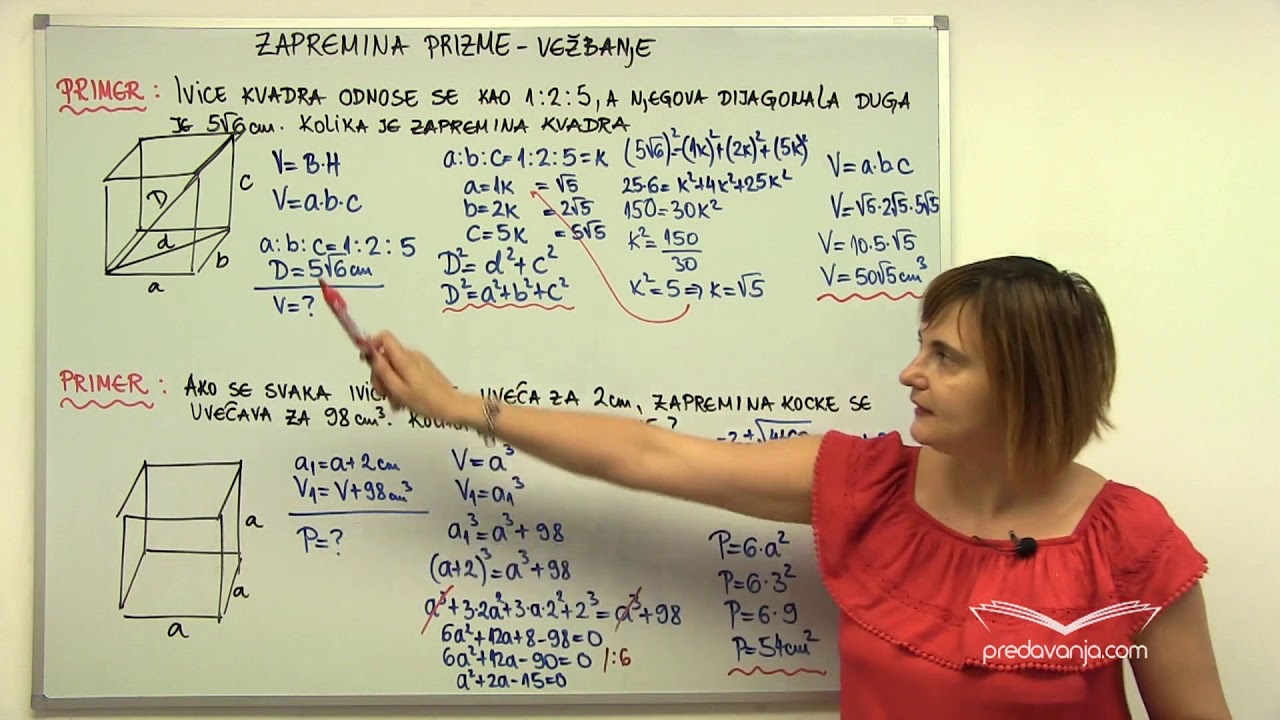 ZAPREMINA PRIZME - VEŽBANJE
PRIMER: IVICE KVADRA ODNOSE SE KAO 1:2:5, A NJEGOVA DIJAGONALA DUGA
JE 5√6cm. KOLIKA JE ZAPREMINA KVADRA
D
d
a
b
c
V=B·H
V=a·b·c
a:b:c=1:2:5
D=5√6cm
V=?
a:b:c=1:2:5=k
a=1k =√5
b=2k =2√5
c=5k =5√5
D²=d²+c²
D²=a²+b²+c²
(5√6)²=(1k)²+(2k)²+(5k)²
25·6=k²+4k²+25k²
150=30k²
k²=150/30
k²=5⇒k=√5
V=a·b·c
V=√5·2√5·5√5
V=10·5·√5
V=50√5cm³
PRIMER: AKO SE SVAKA UVEĆA ZA 2cm, ZAPREMINA KOCKE SE
UVEĆAVA ZA 98cm³.
a
a
a
a₁=a+2cm
V₁=V+98cm³
P=?
V=a³
V₁=a₁³
a₁³=a³+98
(a+2)³=a³+98
a³+3·2a²+3·a·2²+2³=a³+98
6a²+12a+8-98=0
6a²+12a-90=0 /:6
a²+2a-15=0
P=6·a²
P=6·3²
P=6·9
P=54cm²
predavanja.com